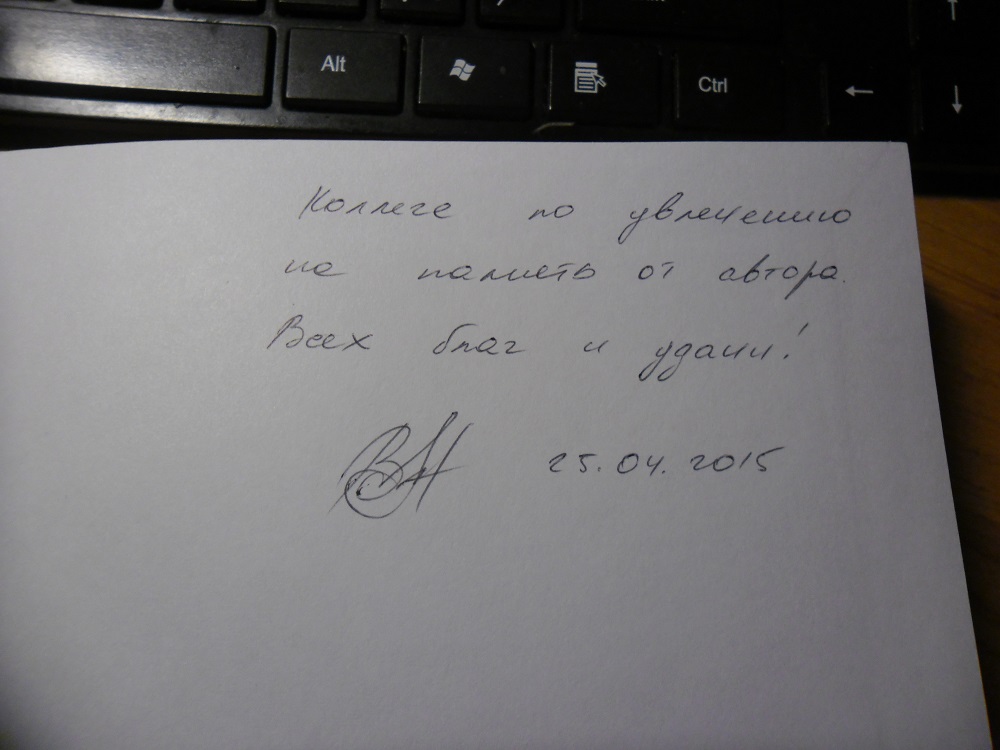 Alt
Ctrl
←
↓
Коллеге по увлечению
на память от автора.
Всех благ и удачи!
25.04.2015